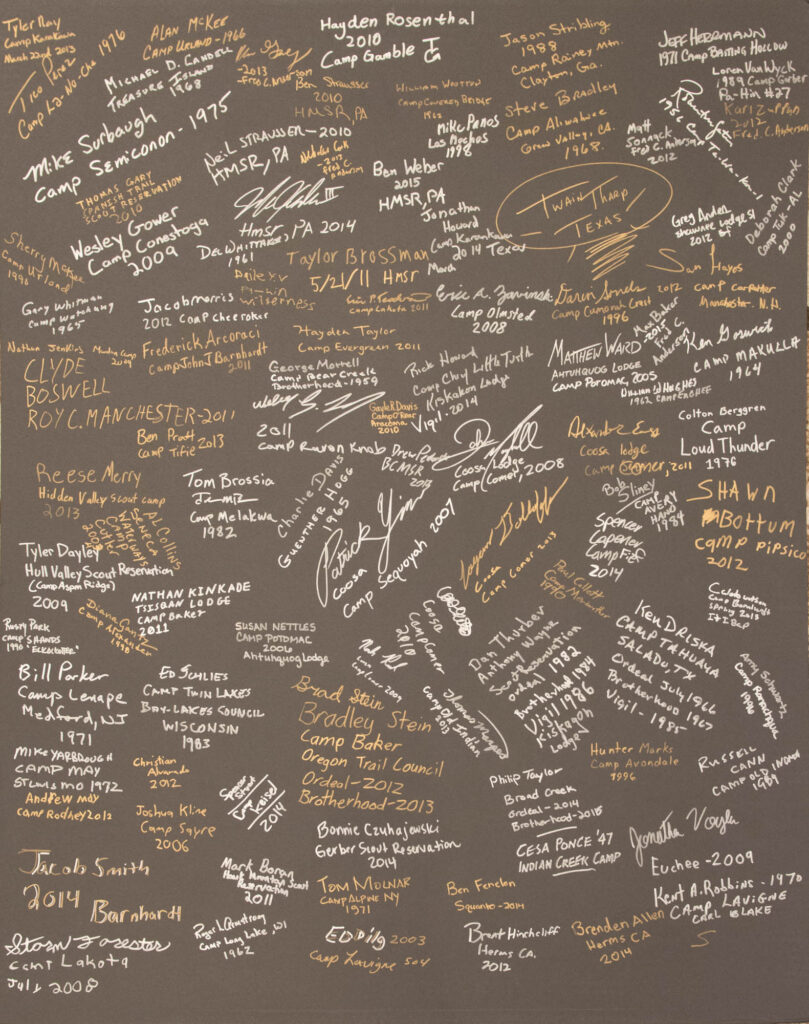 Tyler Ray
Camp Karankawa
March 22nd 2013
Tico Perez
Camp La-No-Che 1976
ALAN McKEE
CAMP UPLAND-1966
MICHAEL D. CANDELL
TREASURE ISLAND
1968
-2013
Fred C. Anderson
Hayden Rosenthal
2010
Camp Gamble
Ben Strausser
2010
HMSR, PA
WILLIAM WOOTON
1962
Mike Panos
Los Mochos
1998
Jason Stribling
1988
Camp Rainey Mtn.
Clayton, Ga.
Steve Bradley
Camp Aliwahwee
Valley, CA.
1968
JEFF HERRMANN
1971 CAMP BASTING HOLLOW
Loren Van Wyck
1989 Camp Gerber
Pa-Hin #27
2012
Fred C. Anderson
1986 Camp
Matt
Fred C. Anderson
2012
Mike Surbaugh
Camp Semiconon-1975
NEIL STRAUSSER-2010
HMSR, PA
-2013
Fred C.
Anderson
Ben Weber
2015
HMSR, PA
THOMAS GARY
SPANISH TRAIL
SCOUT RESERVATION
2010
HMSR, PA 2014
Jonathan
Howard
Camp Karankawa
2014 Texas
March
TWAIN THARP
TEXAS
2012
Deborah Clark
Camp Tuk-
2000
Wesley Gower
Camp Conestoga
2009
DEL WHITTAKER,
1961
Sherry McKee
Camp Upland
1996
Taylor Brossman
5/21/11 HMSR
wilderness
Camp Lakota 2011
Eric A. Zawinski
Camp Olmsted
2008
2012
Camp Camorah Crest
1996
Sam Hayes
camp carpenter
Manchester N.H.
Gary Whitman
Camp Watchung
1965
Jacob morris
2012 Camp cheerokee
Nathan Jenkins
Frederick Arcoraci
Camp John J Barnhardt
2011
Hayden Taylor
Camp Evergreen 2011
Max Baker
2015
Fred C.
Anderson
Ken
CAMP MAKULLA
1964
CLYDE
BOSWELL
ROY C. MANCHESTER-2011
George Mortell
Camp Bear Creek
Brotherhood-1959
Rick Howard
Camp Chief Little Turtle
Kiskakon Lodge
Vigil-2014
MATTHEW WARD
AHTUHQUOG LODGE
CAMP POTOMAC, 2005
(DILLIAN W HUGHES)
Ben Pratt
Camp Tifie 2013
2011
Camp Raven Knob
Gayle R Davis
Camp O'Rear
2010
BCMSR
2013
Coosa Lodge
Camp Comer, 2008
Coosa lodge
Camp Comer, 2011
Colton Berggren
Camp
Loud Thunder
1976
Reese Merry
Hidden Valley Scout camp
2013
Tom Brossia
Camp Melakwa
1982
Charlie Davis
GUENTHER HOGG
1965
PATRICK
COOSA
Camp Sequoyah 2007
Coosa
Camp Comer 2013
Bob Sliney
CAMP
AVERY
HAND
1984
Spencer
Camp Fife
2014
SHAWN
BOTTUM
CAMP PIPSICO
2012
AL Collins
Seneca
Waterways
Camp
Cutler
Tyler Dayley
Hull Valley Scout Reservation
(Camp Aspen Ridge)
2009
NATHAN KINKADE
TSISQAN LODGE
CAMP BAKER
2011
Camp Alexander
1998
Rusty Park
CAMP SHANDS
1990
SUSAN NETTLES
CAMP POTOMAC
2006
Ahtuhquog Lodge
Coosa
Camp Comer
2010
Paul Gillett
Dan Thurber
Anthony Wayne
Scout Reservation
Ordeal 1982
Brotherhood 1984
Vigil 1986
Kiskakon
Lodge
KEN DRISKA
CAMP TAHUAYA
SALADO, TX
Ordeal July 1966
Brotherhood 1967
Vigil-1985
Spring 2013
Amy Schwartz
Camp
1990
Bill Parker
Camp Lenape
Medford, NJ
1971
ED SCHLIES
CAMP TWIN LAKES
BAY-LAKES COUNCIL
WISCONSIN
1983
Camp Old Indian
2013
Brad Stein
Bradley Stein
Camp Baker
Oregon Trail Council
Ordeal-2012
Brotherhood-2013
Hunter Marks
Camp Avondale
1996
RUSSELL
CANN
CAMP OLD INDIAN
1989
MIKE YARBROUGH
CAMP MAY
ST LOUIS MO 1972
ANDREW MAY
CAMP RODNEY 2012
Christian
Alvarado
2012
Joshua Kline
Camp Sayre
2006
Camp
Kreise
2014
Philip Taylor
Broad Creek
ordeal-2014
Brotherhood-2015
Bonnie Czuhajewski
Gerber Scout Reservation
2014
CESA PONCE '47
INDIAN CREEK CAMP
Euchee-2009
Jacob Smith
2014 Barnhardt
Mark Boran
Hawk Mountain Scout
Reservation
2011
TOM MOLNAR
CAMP ALPINE NY
1971
Ben Fenelon
Squanto-2014
Kent A. Robbins-1970
CAMP LAVIGNE
CARL BLAKE
Storm Forester
Camp Lakota
July 2008
Roger L Armstrong
Camp Long Lake, WI
1962
ED Dilg 2003
Camp Lavigne 504
Brent Hinchcliff
Herms CA.
2012
Brenden Allen
Herms CA
2014